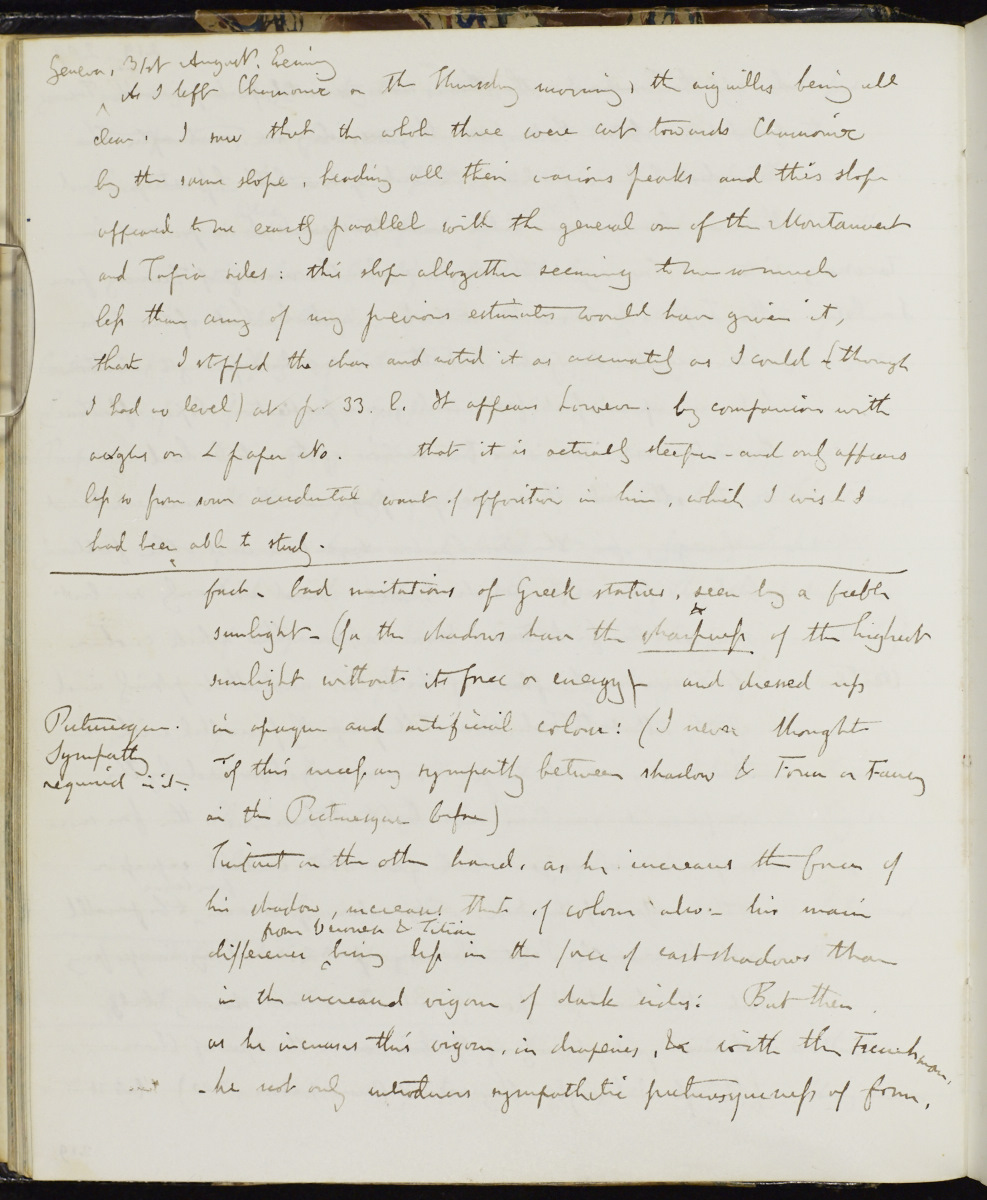 Geneva, 31st August. Evening
As I left Chamonix on the Thursday morning, the aiguilles being all
clear. I saw that the whole three were cut towards Chamonix
by the same slope, heading all their various peaks and this slope
appeared to me exactly parallel with the general one of the Montanvert
and Tapia sides: this slope altogether seeming to me so much
less than any of my previous estimates would have given it,
that I stopped the char and noted it as accurately as I could (though
I had no level) at p. 33. l. It appears however. by comparison with
angles on L paper No. that it is actually steeper - and only appears
less so from some accidental want of opposition in line, which I wish I
had been able to study.
fact - bad imitations of Greek statues, seen by a feeble
sunlight - (for the shadows have the sharpness of the highest
sunlight without its force or energy) - and dressed up
Picturesque.
Sympathy
required in it -
in opaque and artificial colour: (I never thought
of this necessary sympathy between shadow & Form or Fancy
in the Picturesque before)
Tintoret on the other hand, as he increases the force of
his shadow, increases that of colour also - his main
from Veronese & Titian
difference being less in the force of cast shadows than
in the increased vigour of dark sides: But then,
as he increases this vigour, in draperies, &c with the Frenchman,
- he not only introduces sympathetic picturesqueness of form,